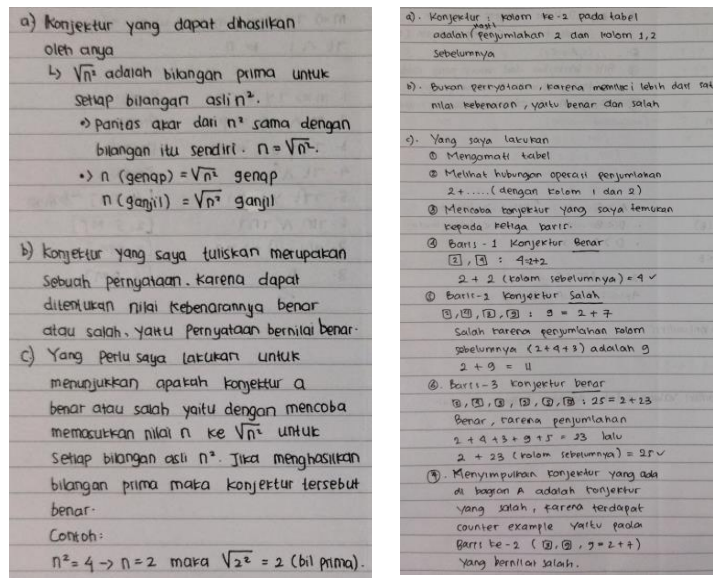 a) Konjektur yang dapat dihasilkan
oleh anya
↳ √n² adalah bilangan prima untuk
setiap bilangan asli n².
•) Paritas akar dari n² sama dengan
bilangan itu sendiri. n = √n².
•) n (genap) = √n² genap
n (ganjil) = √n² ganjil
b) Konjektur yang saya tuliskan merupakan
sebuah pernyataan. Karena dapat
ditentukan nilai kebenarannya benar
atau salah, yaitu Pernyataan bernilai benar.
c) Yang perlu saya lakukan untuk
menunjukkan apakah konjektur a
benar atau salah yaitu dengan mencoba
memasukkan nilai n ke √n² untuk
setiap bilangan asli n². Jika menghasilkan
bilangan prima maka konjektur tersebut
benar.
Contoh:
n² = 4 → n = 2 maka √2² = 2 (bil prima).
a). Konjektur : kolom ke-2 pada tabel
adalah hasil penjumlahan 2 dan kolom 1,2
sebelumnya
b). Bukan pernyataan, karena memiliki lebih dari
nilai kebenaran, yaitu benar dan salah
c). Yang saya lakukan
① Mengamati tabel
② Melihat hubungan operasi penjumlahan
2 + ..... (dengan kolom 1 dan 2)
③ Mencoba konjektur yang saya temukan
kepada ketiga baris.
④ Baris - 1 Konjektur Benar
2, 4 : 4=2+2
2 + 2 (kolom sebelumnya) = 4 ✓
⑤ Baris-2 konjektur Salah
: 9 = 2 + 7
Salah karena penjumlahan kolom
sebelumnya (2+4+3) adalah 9
2 + 9 = 11
⑥. Baris-3 konjektur benar
: 25 = 2+23
Benar, karena penjumlahan
2 + 4 + 3 + 9 + 5 = 23 lalu
2 + 23 (kolom sebelumnya) = 25 ✓
⑦. Menyimpulkan konjektur yang ada
di bagian A adalah konjektur
yang salah, karena terdapat
counter example yaitu pada
Baris ke-2 ( , 9 = 2 + 7)
yang bernilai salah.